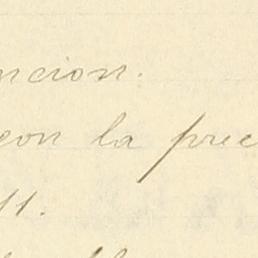 ncion.
con la prec
11.